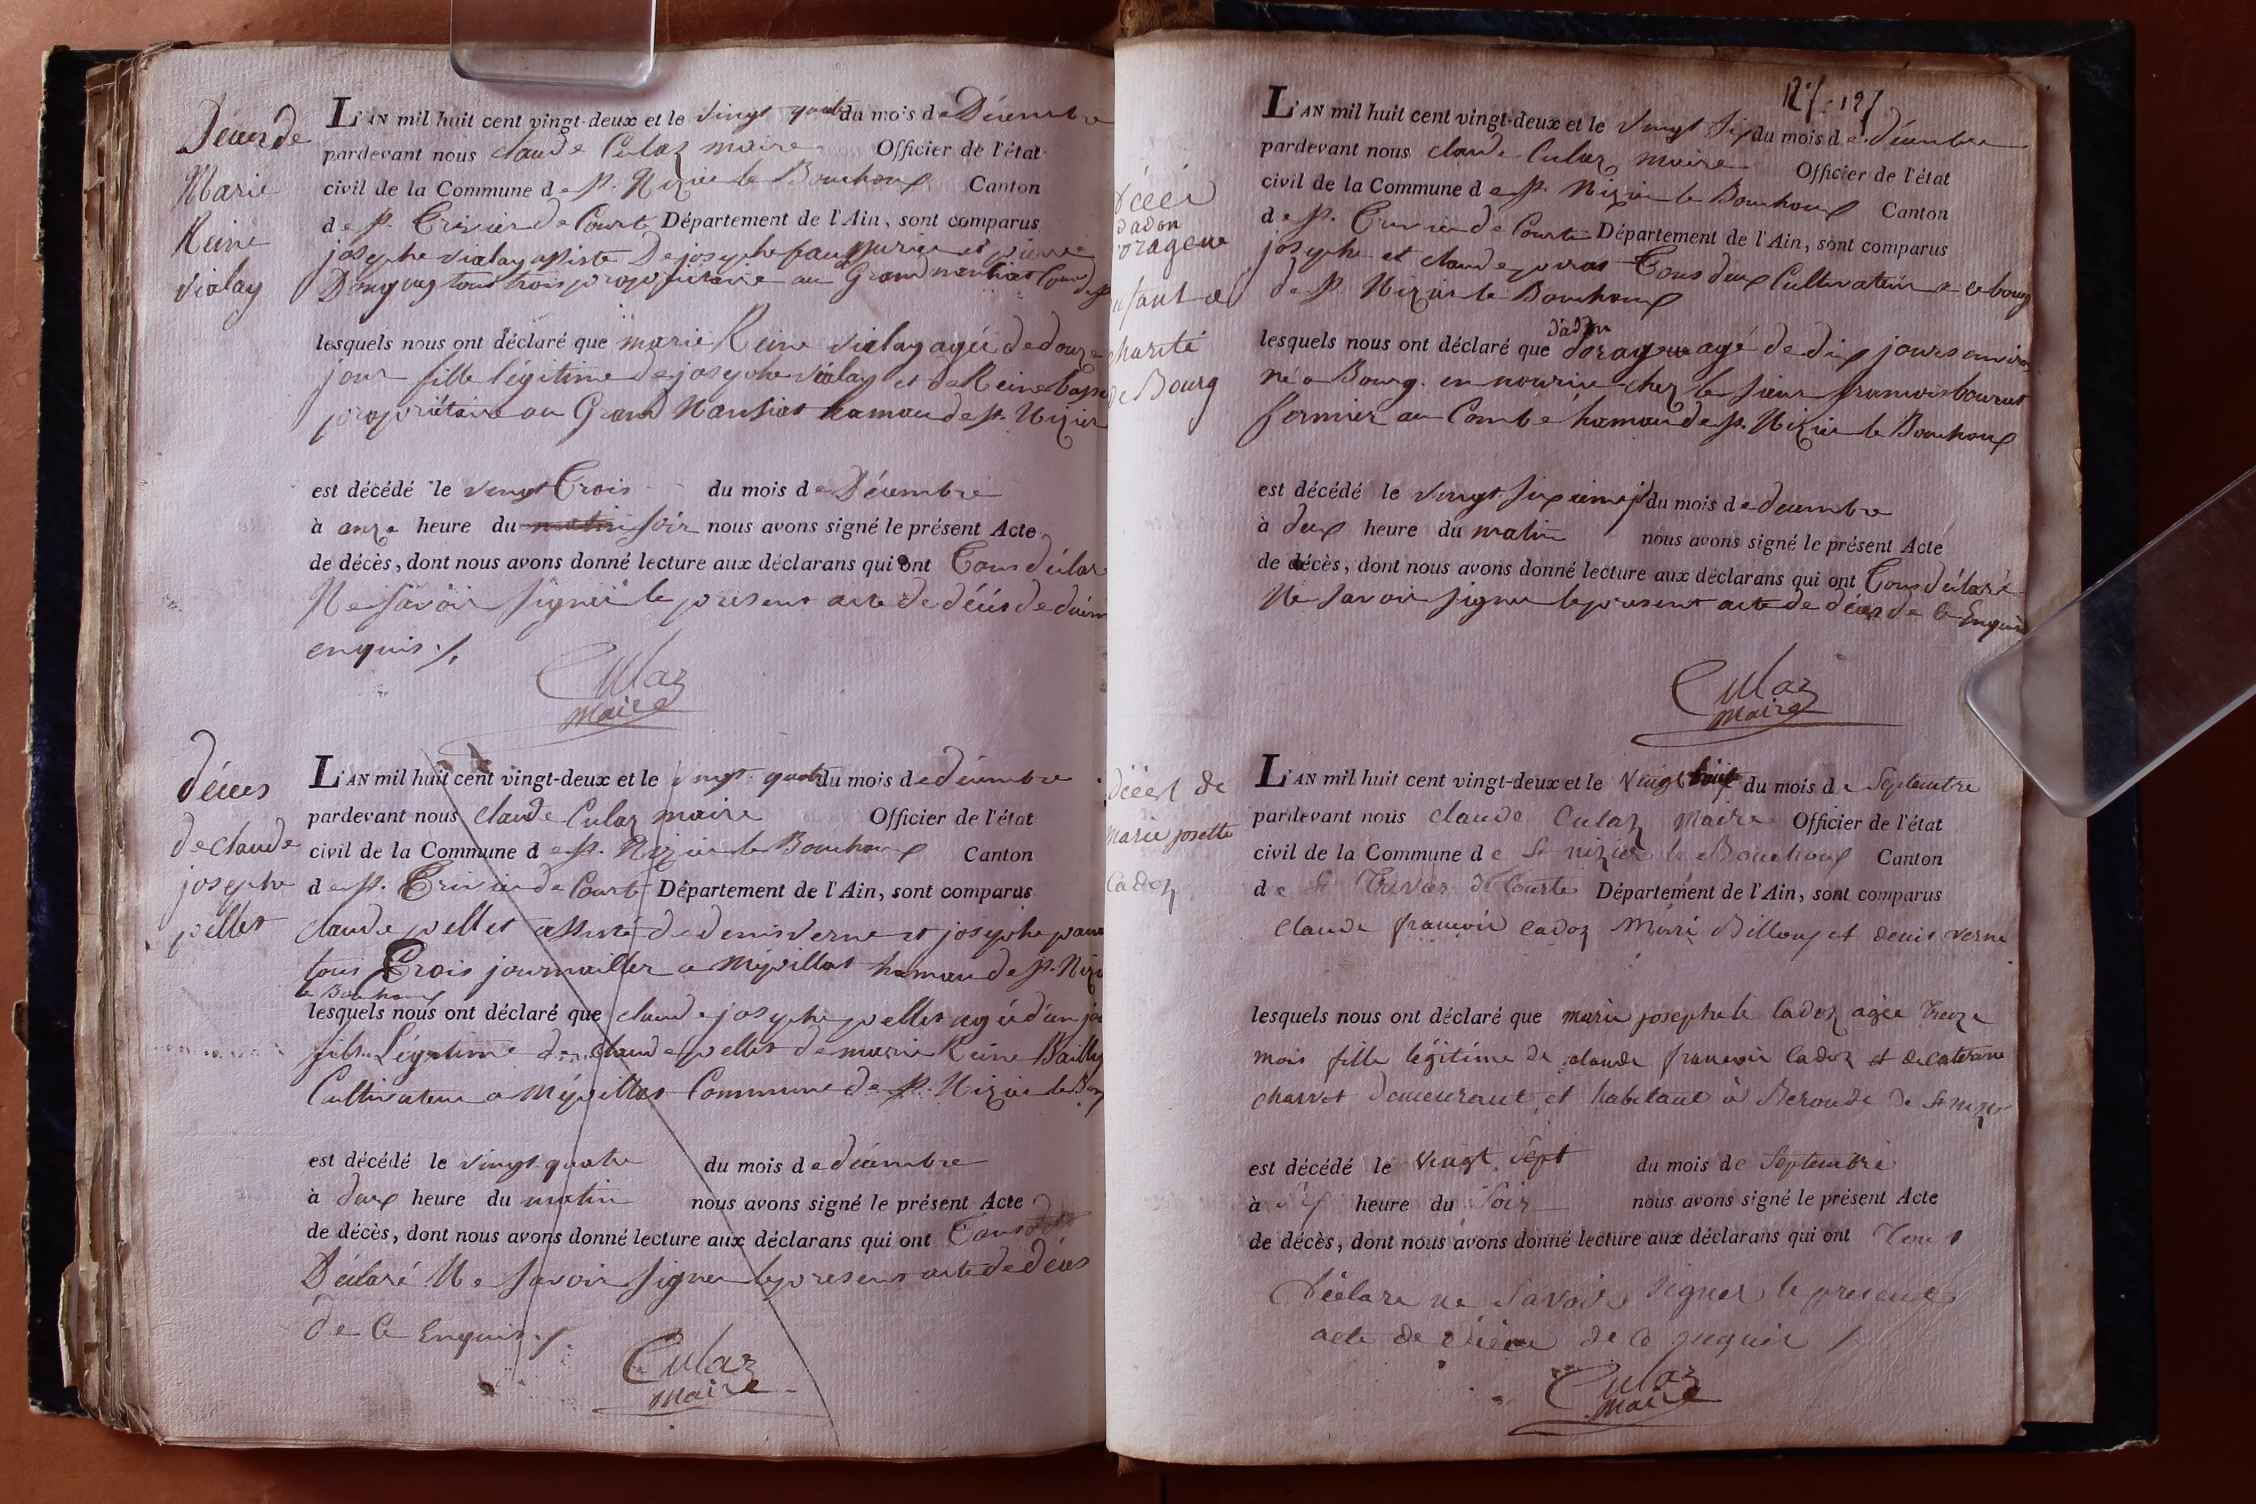 Décès de
Marie
Reine
vialay
L'AN mil huit cent vingt-deux et le vingt quatre du mois de Décembre
pardevant nous claude Culaz maire Officier de l'état
civil de la Commune de St. Nizier le Bouchoux Canton
de St. Trivier de Courte Département de l'Ain, sont comparus
josephe vialay assisté De josephe et
tous trois propriétaire au Grand nantiat
lesquels nous ont déclaré que marie Reine vialay agée de douze
jour fille légitime de josephe vialay et de Reine
propriétaire au Grand Nantiat hamau de St. Nizier
est décédé le vingt Trois du mois de Décembre
à onze heure du matin soir nous avons signé le présent Acte
de décès, dont nous avons donné lecture aux déclarans qui ont Tous déclaré
Ne savoir signer le présent acte de décès de
enquis ./.
Culaz
maire
décès
de claude
josephe
pellet
L'AN mil huit cent vingt-deux et le vingt quatre du mois de décembre
pardevant nous claude Culaz maire Officier de l'état
civil de la Commune de St. Nizier le Bouchoux Canton
de St. Trivier de Courte Département de l'Ain, sont comparus
claude pellet assisté de denis verne et josephe
tous Trois journallier a Mépillat hamau de St. Nizier
le Bouchoux
lesquels nous ont déclaré que claude josephe pellet agé d'un jour
fils Légitime de claude pellet de marie Reine Bailly
Cultivateur a Mépillat Commune de St. Nizier le Bou
est décédé le vingt quatre du mois de décembre
à deux heure du matin nous avons signé le présent Acte
de décès, dont nous avons donné lecture aux déclarans qui ont Tous
Déclaré Ne savoir signer le présent acte de décès
de Ce Enquis ./.
Culaz
maire
127 127
Décès
d'adon
orageux
enfant de
charité
de Bourg
L'AN mil huit cent vingt-deux et le vingt six du mois de décembre
pardevant nous claude Culaz maire Officier de l'état
civil de la Commune de St. Nizier le Bouchoux Canton
de St. Trivier de Courte Département de l'Ain, sont comparus
josephe et claude Tous deux Cultivateur a ce bourg
de St. Nizier le Bouchoux
d'adon
lesquels nous ont déclaré que orageux agé de dix jours environ
né a Bourg en nourrice chez le sieur francois
fermier au Combé hamau de St. Nizier le Bouchoux
est décédé le vingt sixieme du mois de décembre
à deux heure du matin nous avons signé le présent Acte
de décès, dont nous avons donné lecture aux déclarans qui ont Tous déclaré
Ne savoir signer le présent acte de décès de Ce Enquis
Culaz
maire
Décès de
marie josette
Cadoz
L'AN mil huit cent vingt-deux et le vingt huit du mois de Septembre
pardevant nous claude Culaz maire Officier de l'état
civil de la Commune de St nizier le Bouchoux Canton
de St Trivier de Courtes Département de l'Ain, sont comparus
claude francois cadoz Mari Billoux et denis verne
lesquels nous ont déclaré que marie josephete Cadoz agée treize
mois fille légitime de claude francois Cadoz et de caterine
charvet demeurant et habitant à Beronde de St nizier
est décédé le vingt sept du mois de Septembre
à heure du soir nous avons signé le présent Acte
de décès, dont nous avons donné lecture aux déclarans qui ont Tous
Déclare ne savoir signer le présent
acte de décés de ce enquis /
Culaz
maire